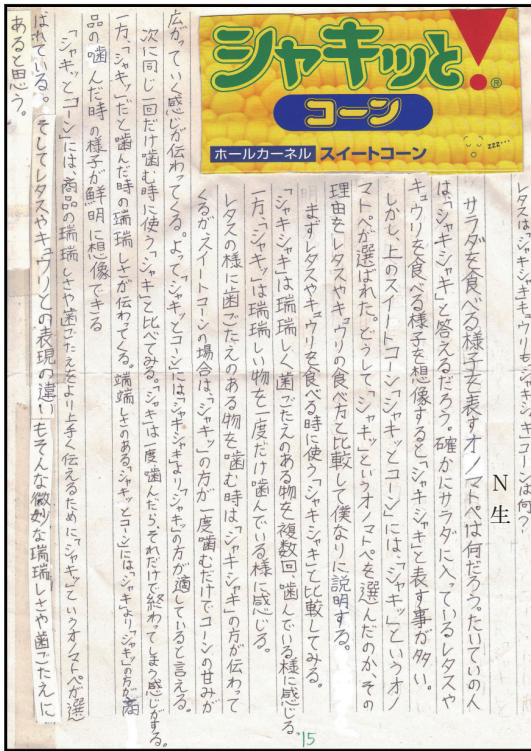 シャキッと!
®
コーン
zzz…
ホールカーネル スイートコーン
タスは「シャキシャキ」キュウリもシャキシャキコーンは何?
N生
サラダを食べる様子を表すオノマトペは何だろう。たいていの人
は、「シャキシャキ」と答えるだろう。確かにサラダに入っているレタスや
キュウリを食べる様子を想像すると「シャキシャキ」と表す事が多い。
しかし、上のスイートコーン「シャキッとコーン」には、「シャキッ」というオノ
マトペが選ばれた。どうして「シャキッ」というオノマトペを選んだのかその
理由をレタスやキュウリの食べ方と比較して僕なりに説明する。
まずレタスやキュウリを食べる時に使う「シャキシャキ」と比較してみる。
「シャキシャキ」は瑞瑞しく歯ごたえのある物を複数回噛んでいる様に感じる。
一方、「シャキッ」は瑞瑞しい物を一度だけ噛んでいる様に感じる。
レタスの様に歯ごたえのある物を噛む時は「シャキシャキ」の方が伝わって
くるが、スイートコーンの場合は、「シャキッ」の方が一度噛むだけでコーンの甘みが
広がっていく感じが伝わってくる。よって「シャキッとコーン」には「シャキシャキ」より「シャキッ」の方が適していると言える。
次に同じ一回だけ噛む時に使う「シャキ」と比べてみる。「シャキ」は一度噛んだら、それだけで終わってしまう感じがする。
一方、「シャキッ」だと噛んだ時の瑞瑞しさが伝わってくる。瑞瑞しさのある「シャキッとコーン」には「シャキ」より「シャキッ」の方が商
品の噛んだ時の様子が鮮明に想像できる
「シャキッとコーン」には、商品の瑞瑞しさや歯ごたえをより上手く伝えるために「シャキッ」ていうオノマトペが選
ばれている。そしてレタスやキュウリとの表現の違いもそんな微妙な瑞瑞しさや歯ごたえに
あると思う。
15